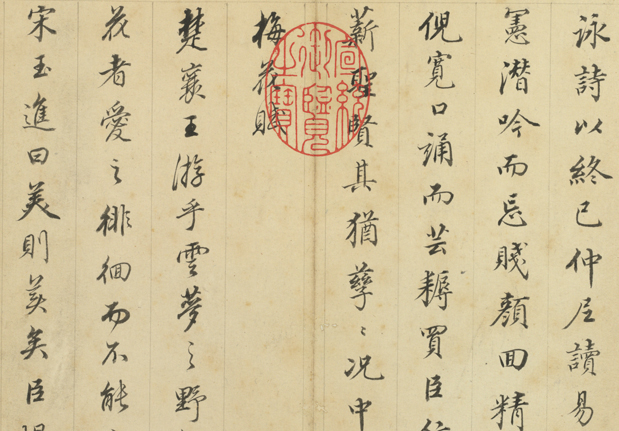 詠詩以終已仲尼讀易
憲潜吟而忘賤顏回精
倪寬口誦而芸耨買臣
薪聖賢其猶孳〻况中
梅花賦
楚襄王游乎雲夢之野
花者愛之徘徊而不能
宋玉進曰美則美矣臣
宣統
御覽
之寶